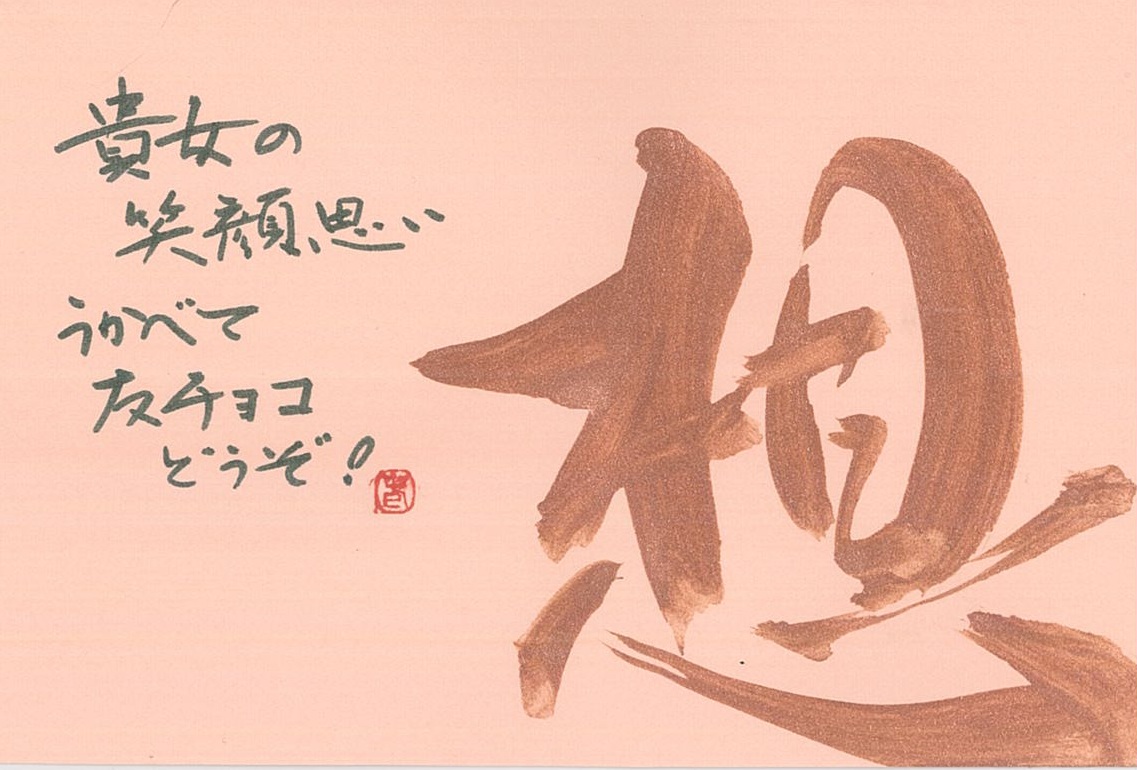 想
貴女の
笑顔思い
うかべて
友チョコ
どうぞ!